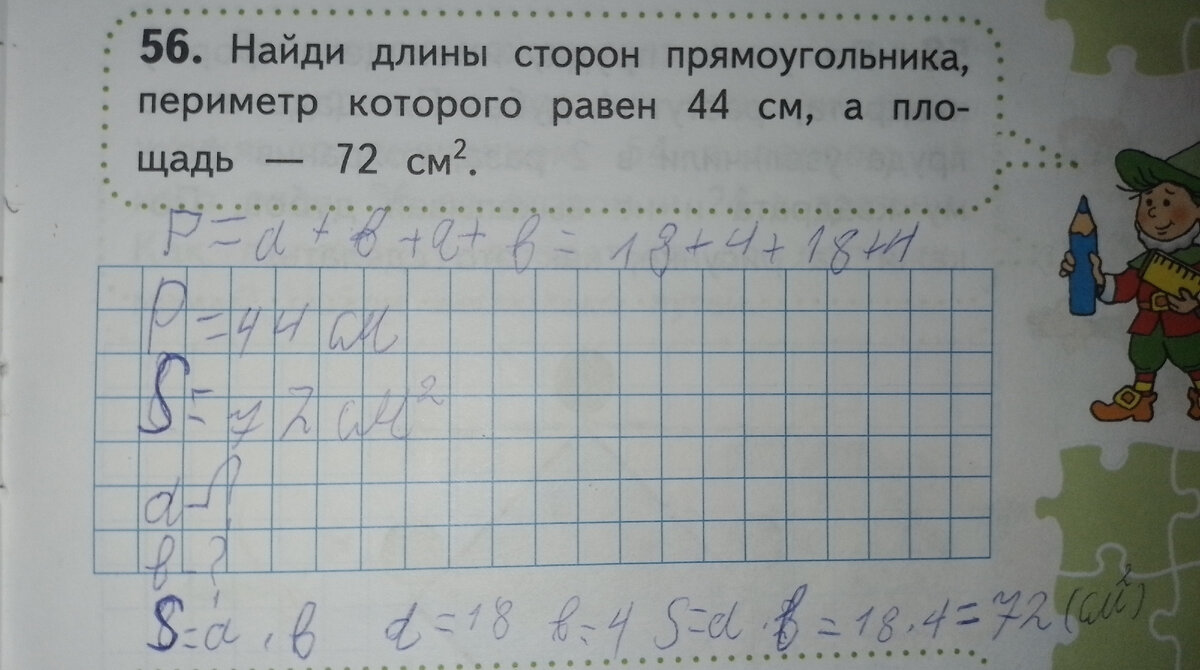 56. Найди длины сторон прямоугольника,
периметр которого равен 44 см, а пло-
щадь — 72 см².
P = a + в + a + в = 18 + 4 + 18 + 4
P = 44 см
S = 72 см²
a - ?
в - ?
S = a · в a = 18 в = 4 S = a · в = 18 · 4 = 72 (см²)